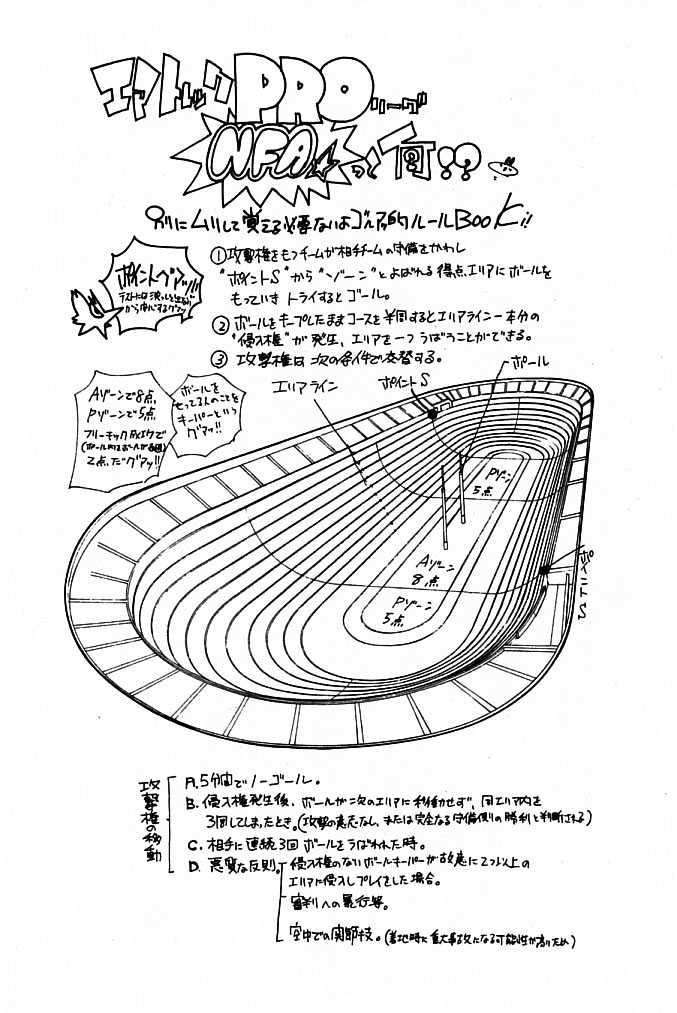 エアトレックPROリーグ
NFA☆って何!?
別にムリして覚える必要ないよゴルァ的ルールBooK!!
ポイントグアッ!!
①攻撃権をもつチームが相手チームの守備をかわし
"ポイントS"から"ゾーン"とよばれる得点エリアにボールを
もっていきトライするとゴール。
②ボールをキープしたままコースを半周するとエリアライン一本分の
"侵入権"が発生、エリアを一つうばうことができる。
③攻撃権は次の条件で交替する。
Aゾーンで8点
Pゾーンで5点
フリーキック成功で
2点だグアッ!!
ボールを
もってる人のことを
キーパーという
グアッ!!
エリアライン
ポイントS
ポール
Pゾーン
5点
Aゾーン
8点
Pゾーン
5点
ポイントS
攻撃権の移動
A.5分間でノーゴール。
B.侵入権発生後、ボールが次のエリアに移動せず、同エリア内を
3回してしまったとき。(攻撃の意志なし、または完全なる守備側の勝利と判断される)
C.相手に連続3回ボールをうばわれた時。
D.悪質な反則。
侵入権のないボールキーパーが故意に2つ以上の
エリアに侵入しプレイをした場合。
審判への暴行等。
空中での関節技。(着地時に重大事故になる可能性が高いため)